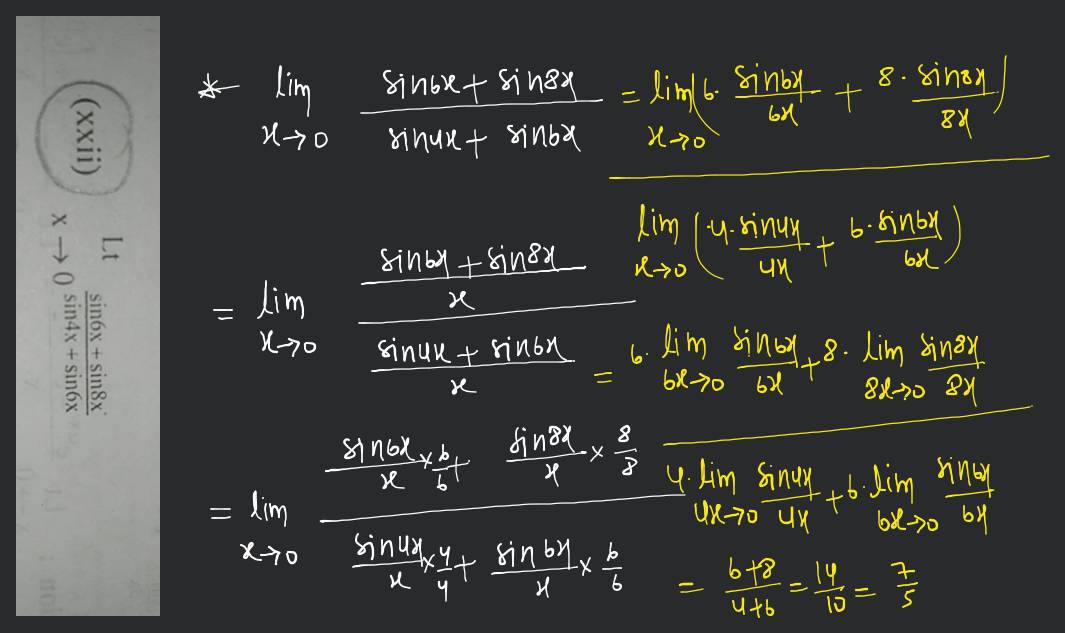 (xxii) Lt x → 0 sin6x + sin8x / sin4x + sin6x
* lim x→0 sin6x + sin8x / sin4x + sin6x
= lim x→0 (sin6x + sin8x / x) / (sin4x + sin6x / x)
= lim x→0 (sin6x / x × 6/6 + sin8x / x × 8/8) / (sin4x / x × 4/4 + sin6x / x × 6/6)
= lim x→0 (6. sin6x / 6x + 8. sin8x / 8x) / lim x→0 (4. sin4x / 4x + 6. sin6x / 6x)
= (6. lim 6x→0 sin6x / 6x + 8. lim 8x→0 sin8x / 8x) / (4. lim 4x→0 sin4x / 4x + 6. lim 6x→0 sin6x / 6x)
= 6+8 / 4+6 = 14 / 10 = 7 / 5